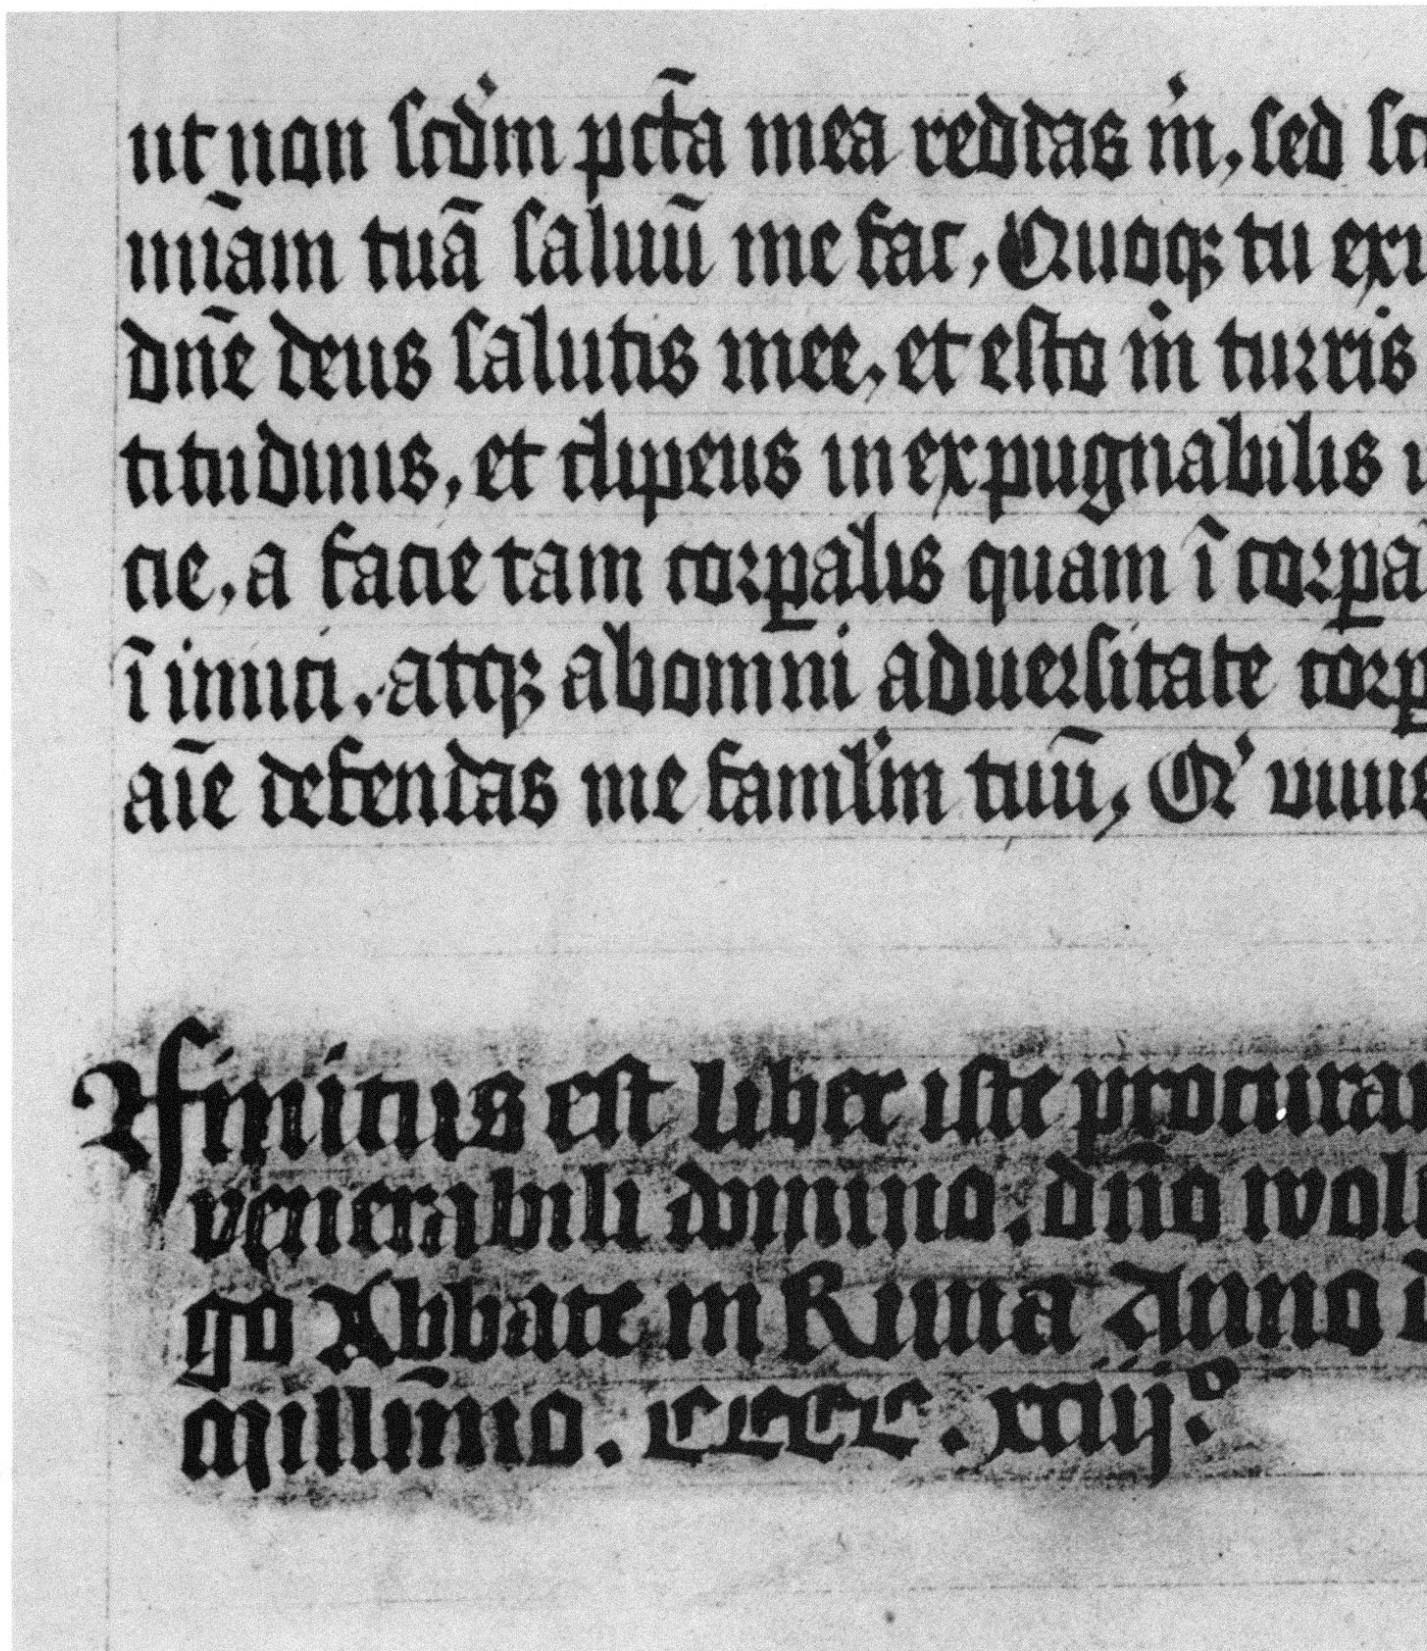 ut non scd'm pct̄a mea reddas m̍, sed
mīam tuā saluū me fac, Quoqꝫ tu
dn̄e deus salutis mee, et esto m̍ turris
titudinis, et clipeus inexpugnabilis
cie, a facie tam corꝑalis quam ī corꝑa
ī inuici, atqꝫ ab omni aduersitate corꝑ
aīe defendas me famłm tuū, Qͥ uiuis
Finitus est liber iste procura
venerabili domino. dn̄o wol
go Abbate in Runa Anno d
millīmo. CCCC. xxiijº